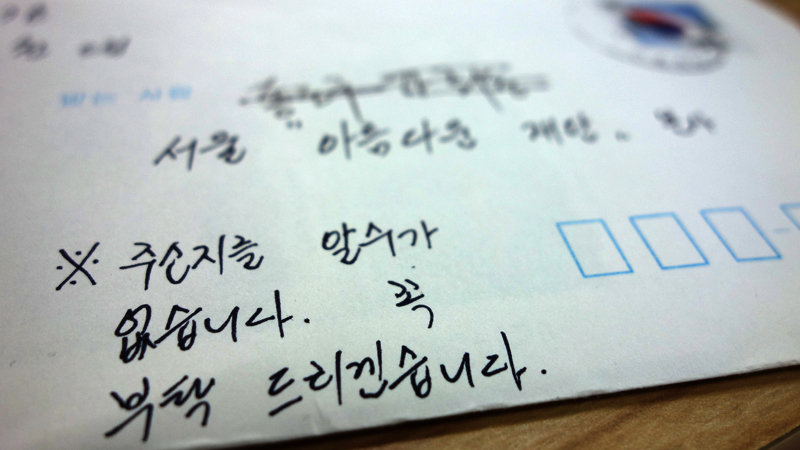 받는 사람
서울 "아름다운 재단"
※ 주소지를 알수가
없습니다. 꼭
부탁 드리겐습니다.